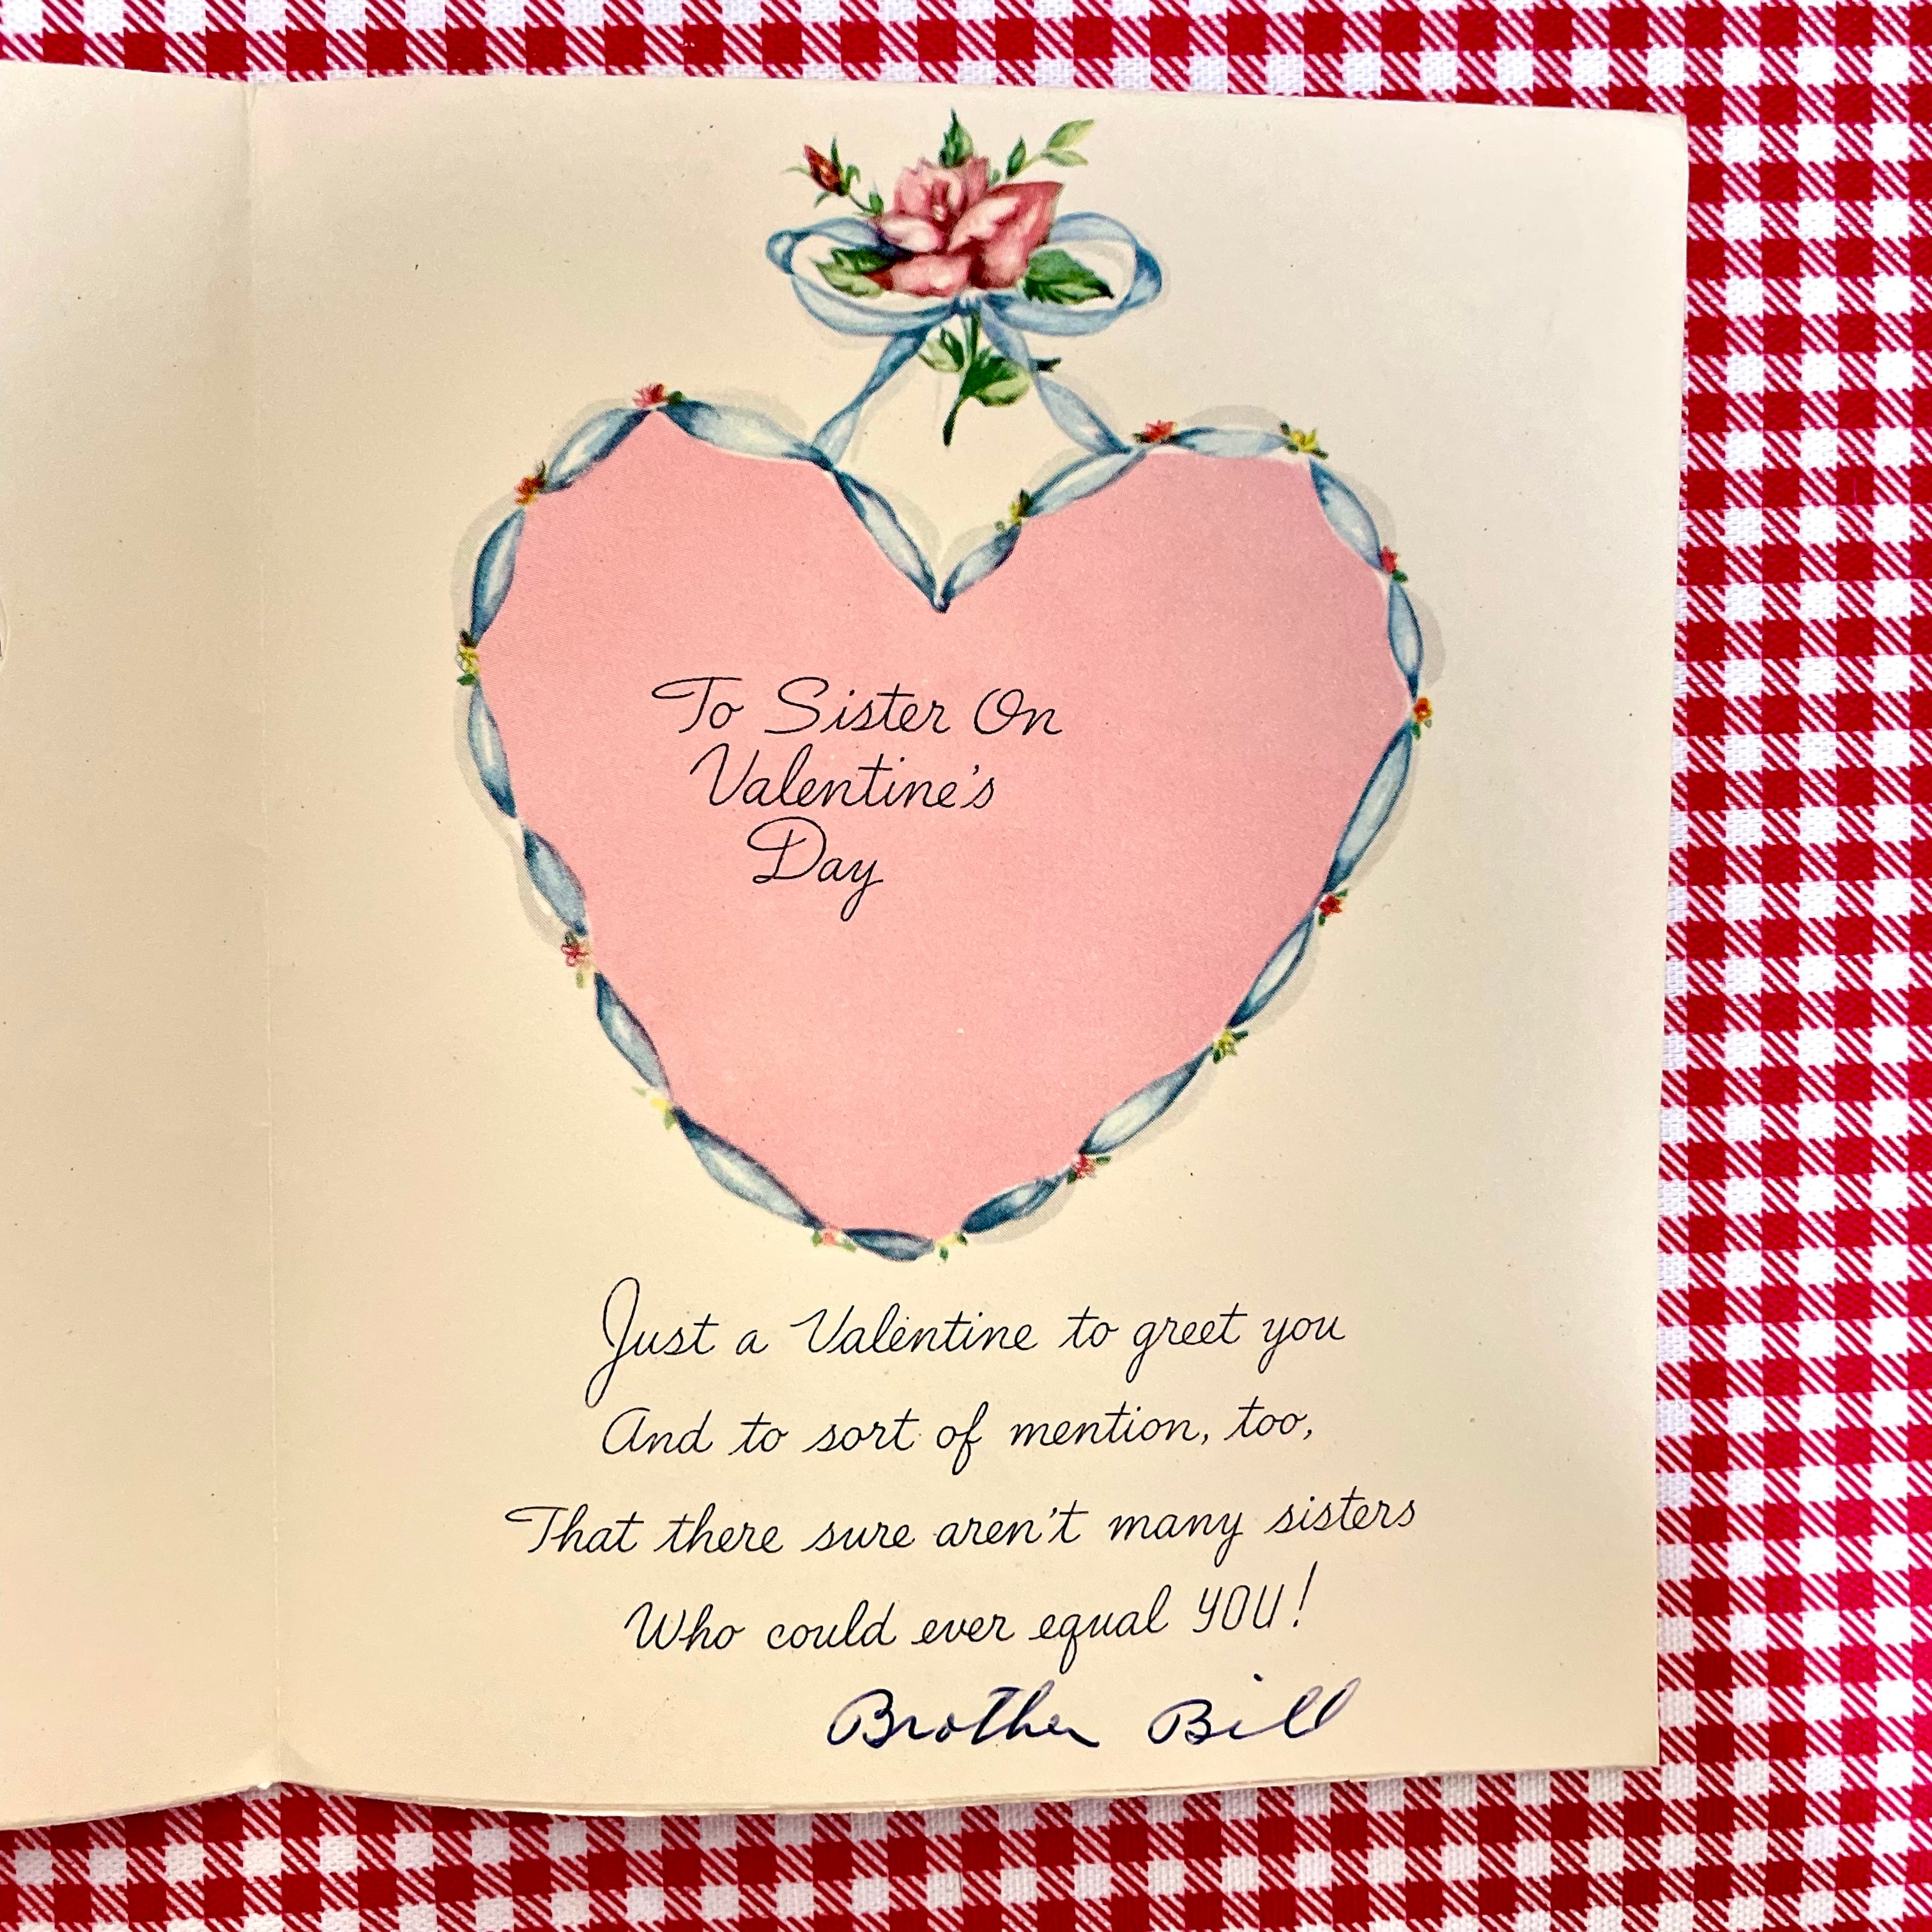 To Sister On
Valentine's
Day
Just a Valentine to greet you
And to sort of mention, too,
That there sure aren't many sisters
Who could ever equal YOU!
Brother Bill